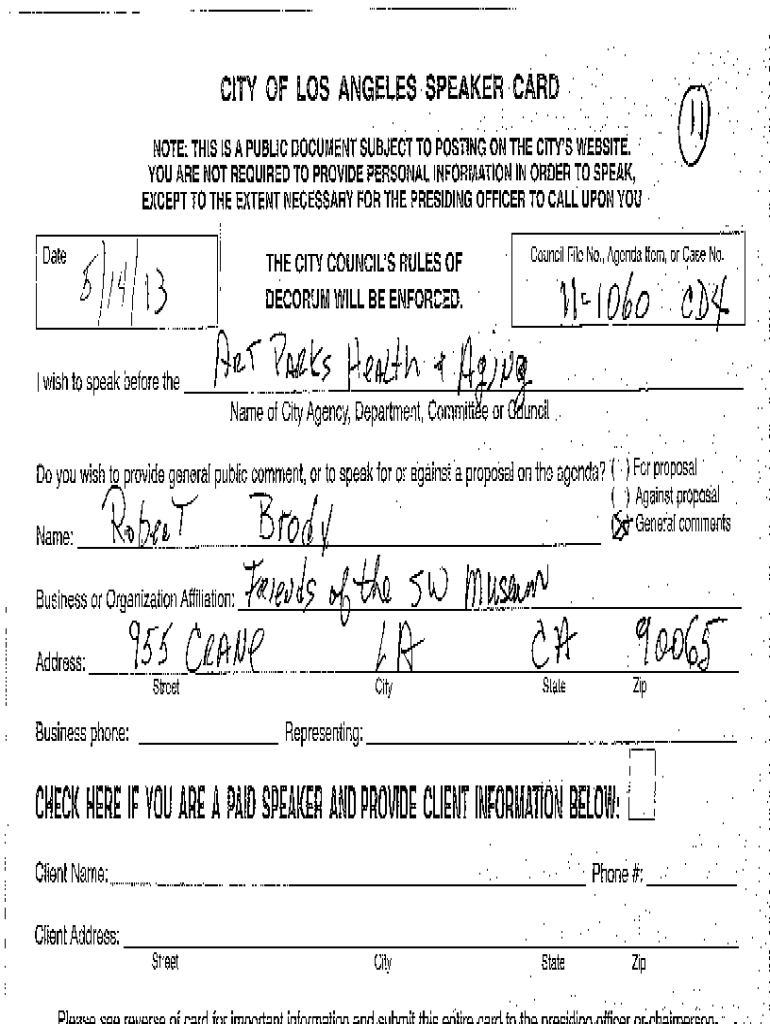 CITY OF LOS ANGELES SPEAKER CARD
11
NOTE: THIS IS A PUBLIC DOCUMENT SUBJECT TO POSTING ON THE CITY'S WEBSITE.
YOU ARE NOT REQUIRED TO PROVIDE PERSONAL INFORMATION IN ORDER TO SPEAK,
EXCEPT TO THE EXTENT NECESSARY FOR THE PRESIDING OFFICER TO CALL UPON YOU
Date 5/14/13
THE CITY COUNCIL'S RULES OF
DECORUM WILL BE ENFORCED.
Council File No., Agenda Item, or Case No.
11-1060 CD4
I wish to speak before the Art Parks Health & Aging
Name of City Agency, Department, Committee or Council
Do you wish to provide general public comment, or to speak for or against a proposal on the agenda? ( ) For proposal
( ) Against proposal
(X) General comments
Name: Robert Brody
Business or Organization Affiliation: Friends of the SW Museum
Address: 955 Crane LA CA 90065
Street City State Zip
Business phone: Representing:
CHECK HERE IF YOU ARE A PAID SPEAKER AND PROVIDE CLIENT INFORMATION BELOW:
Client Name: Phone #:
Client Address:
Street City State Zip
Please see reverse of card for important information and submit this entire card to the presiding officer or chairperson.